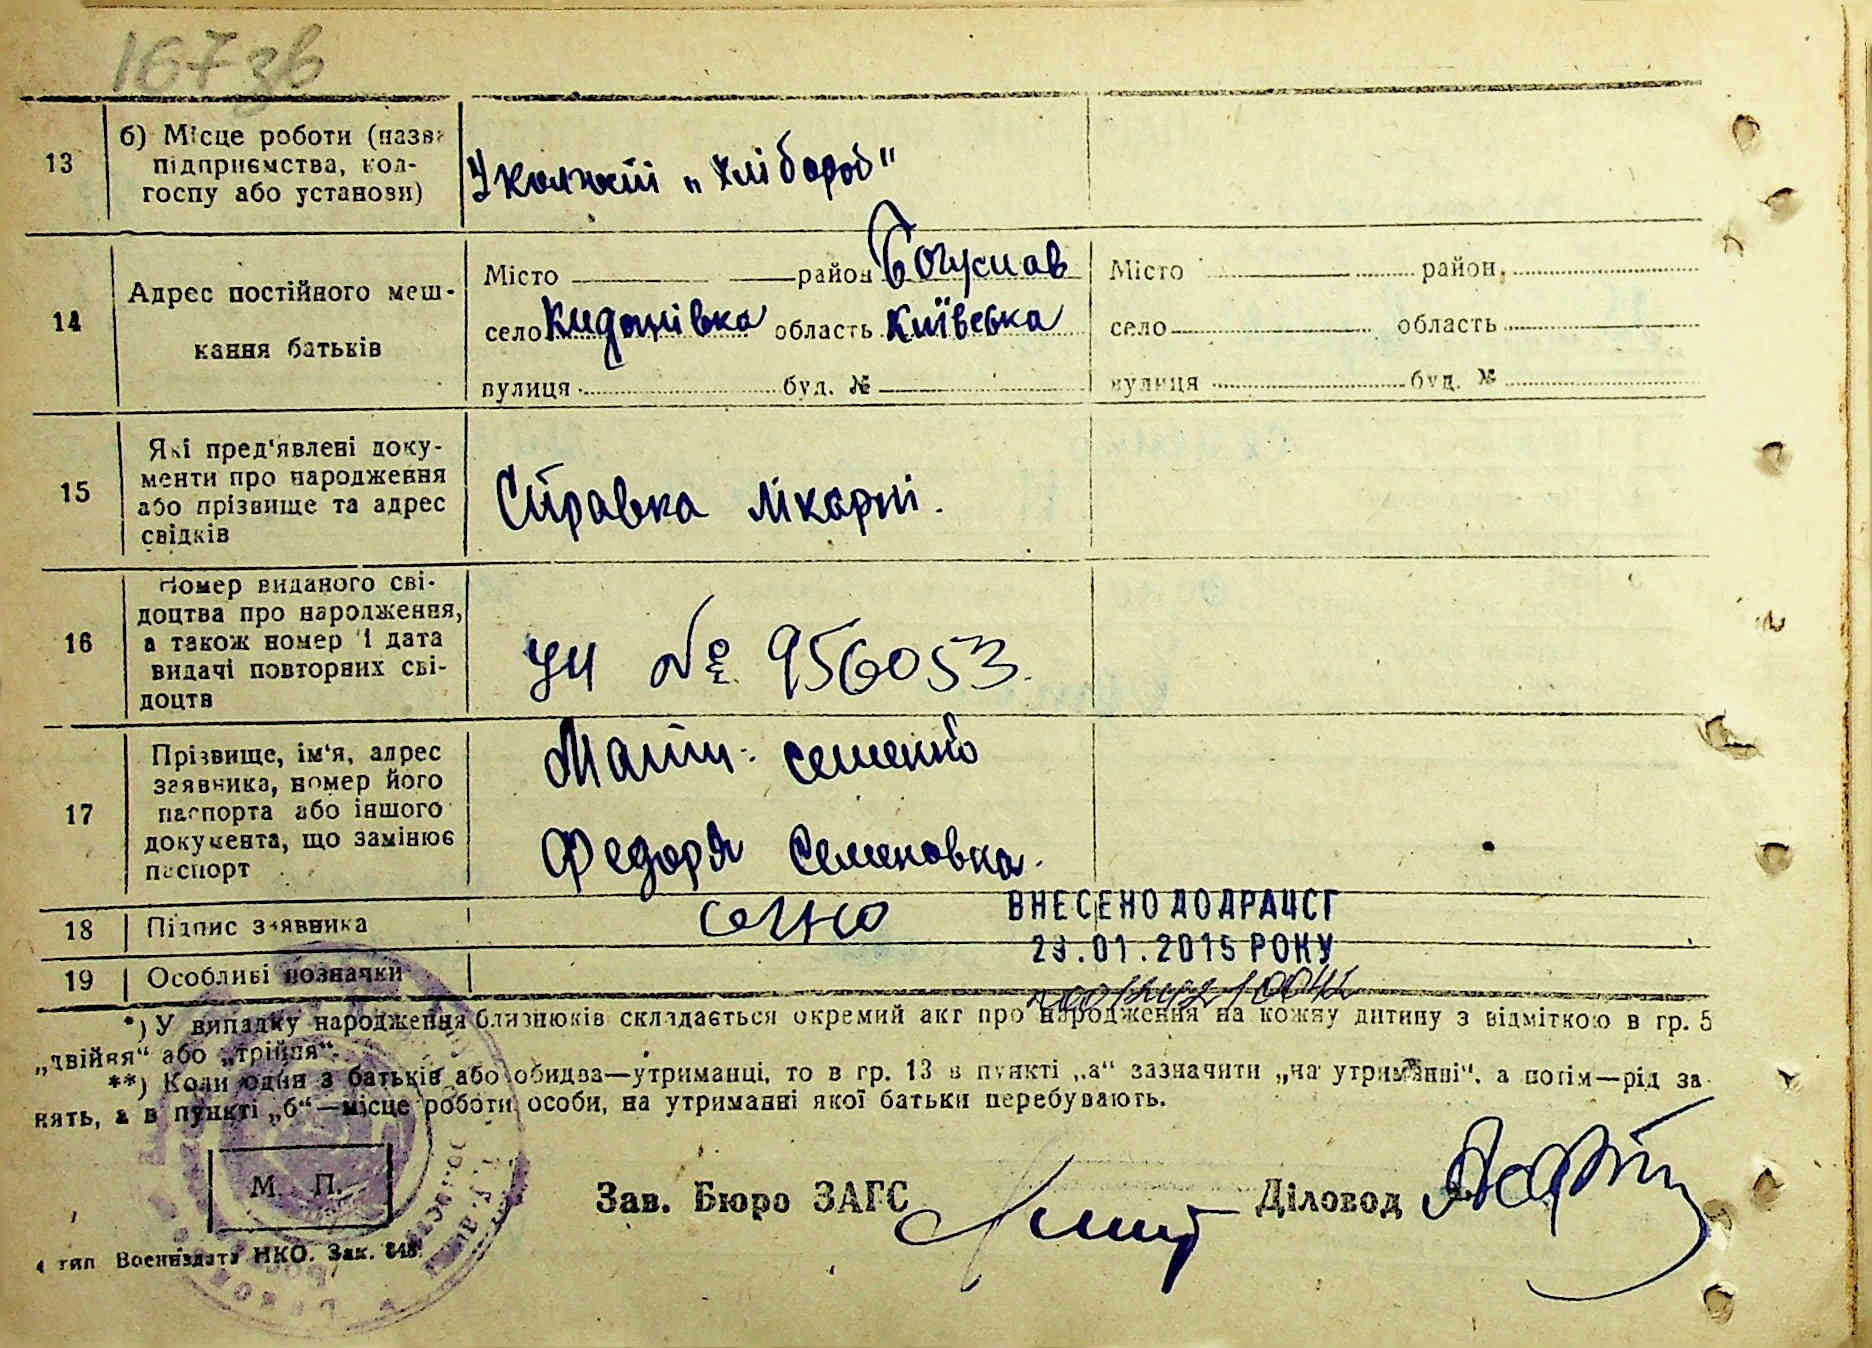 167 зв
13 б) Місце роботи (назва
підприємства, кол-
госпу або установи)
У колгоспі „Хлібороб"
14 Адрес постійного меш-
кання батьків
Місто район Богуслав
село Киданівка область Київська
вулиця буд. №
Місто район
село область
вулиця буд. №
15 Які пред'явлені доку-
менти про народження
або прізвище та адрес
свідків
Справка лікарні.
16 Номер виданого сві-
доцтва про народження,
а також номер і дата
видачі повторних сві-
доцтв
УЦ № 956053.
17 Прізвище, ім'я, адрес
заявника, номер його
паспорта або іншого
документа, що замінює
паспорт
Мати: Семенко
Федоря Семеновка.
18 Підпис заявника
ВНЕСЕНО ДО ДРАЦСГ
23.01.2015 РОКУ
19 Особливі позначки
*) У випадку народження близнюків складається окремий акт про народження на кожну дитину з відміткою в гр. 5
„двійня" або „трійня".
**) Коли один з батьків або обидва—утриманці, то в гр. 13 в пункті „а" зазначити „на утриманні", а потім—рід за-
нять, а в пункті „б"—місце роботи особи, на утриманні якої батьки перебувають.
М. П.
Зав. Бюро ЗАГС
Діловод
4 тип Воениздата НКО. Зак. 848